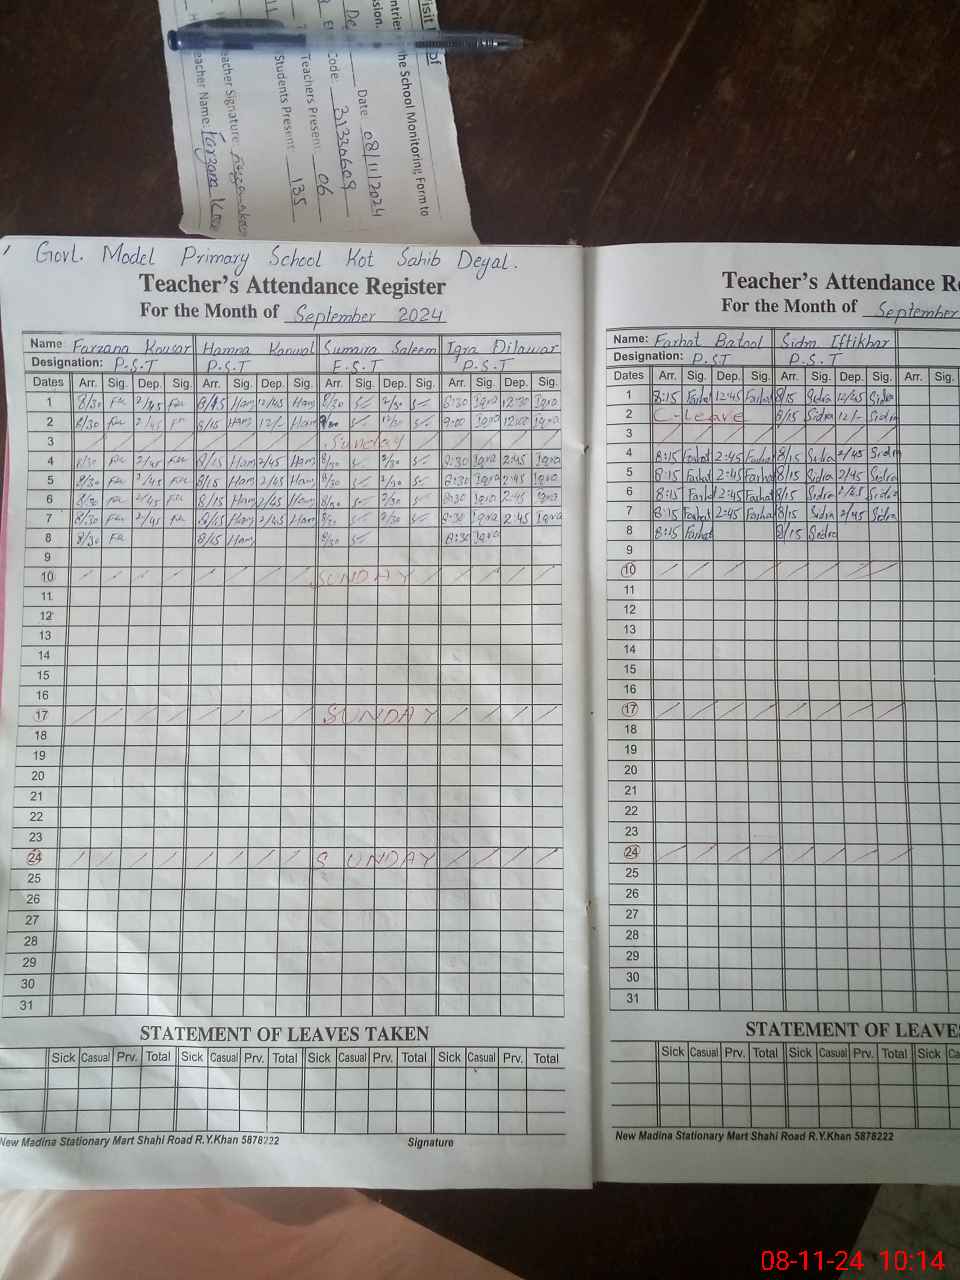 Visit
of
the School Monitoring Form to
Date: 08/11/2024
Code: 31330609
Teachers Present: 06
Students Present: 135
Teacher Signature:
Teacher Name: Farzana
Govt. Model Primary School Kot Sahib Deyal.
Teacher's Attendance Register
For the Month of September 2024
Name: Farzana Kousar Hamna Kanwal Sumaira Saleem Iqra Dilawar
Designation: P.S.T P.S.T E.S.T P.S.T
Dates Arr. Sig. Dep. Sig. Arr. Sig. Dep. Sig. Arr. Sig. Dep. Sig. Arr. Sig. Dep. Sig.
1 8/30 Fa 2/45 Fa 8/15 Ham 12/45 Ham 8/30 2/30 8:30 Iqra 12:30 Iqra
2 8/30 Fa 2/45 Fa 8/15 Ham 12/- Ham 9:00 Iqra 12:00 Iqra
3 Sunday
4 8/30 Fa 2/45 Fa 8/15 Ham 2/45 Ham 8/30 2/30 8:30 Iqra 2:45 Iqra
5 8/30 Fa 2/45 Fa 8/15 Ham 2/45 Ham 8/30 2/30 8:30 Iqra 2:45 Iqra
6 8/30 Fa 2/45 Fa 8/15 Ham 2/45 Ham 8/30 2/30 8:30 Iqra 2:45 Iqra
7 8/30 Fa 2/45 Fa 8/15 Ham 2/45 Ham 8/30 2/30 8:30 Iqra 2:45 Iqra
8 8/30 Fa 8/15 Ham 8/30 8:30 Iqra
9
10 SUNDAY
11
12
13
14
15
16
17 SUNDAY
18
19
20
21
22
23
24 SUNDAY
25
26
27
28
29
30
31
STATEMENT OF LEAVES TAKEN
Sick Casual Prv. Total Sick Casual Prv. Total Sick Casual Prv. Total Sick Casual Prv. Total
New Madina Stationary Mart Shahi Road R.Y.Khan 5878222 Signature
Teacher's Attendance R
For the Month of September
Name: Farhat Batool Sidra Iftikhar
Designation: P.S.T P.S.T
Dates Arr. Sig. Dep. Sig. Arr. Sig. Dep. Sig. Arr. Sig.
1 8:15 Farhat 12:45 Farhat 8/15 Sidra 12/45 Sidra
2 C-Leave 8/15 Sidra 12/- Sidra
3
4 8:15 Farhat 2:45 Farhat 8/15 Sidra 2/45 Sidra
5 8:15 Farhat 2:45 Farhat 8/15 Sidra 2/45 Sidra
6 8:15 Farhat 2:45 Farhat 8/15 Sidra 2/45 Sidra
7 8:15 Farhat 2:45 Farhat 8/15 Sidra 2/45 Sidra
8 8:15 Farhat 8/15 Sidra
9
10
11
12
13
14
15
16
17
18
19
20
21
22
23
24
25
26
27
28
29
30
31
STATEMENT OF LEAVES
Sick Casual Prv. Total Sick Casual Prv. Total Sick Ca
New Madina Stationary Mart Shahi Road R.Y.Khan 5878222
08-11-24 10:14